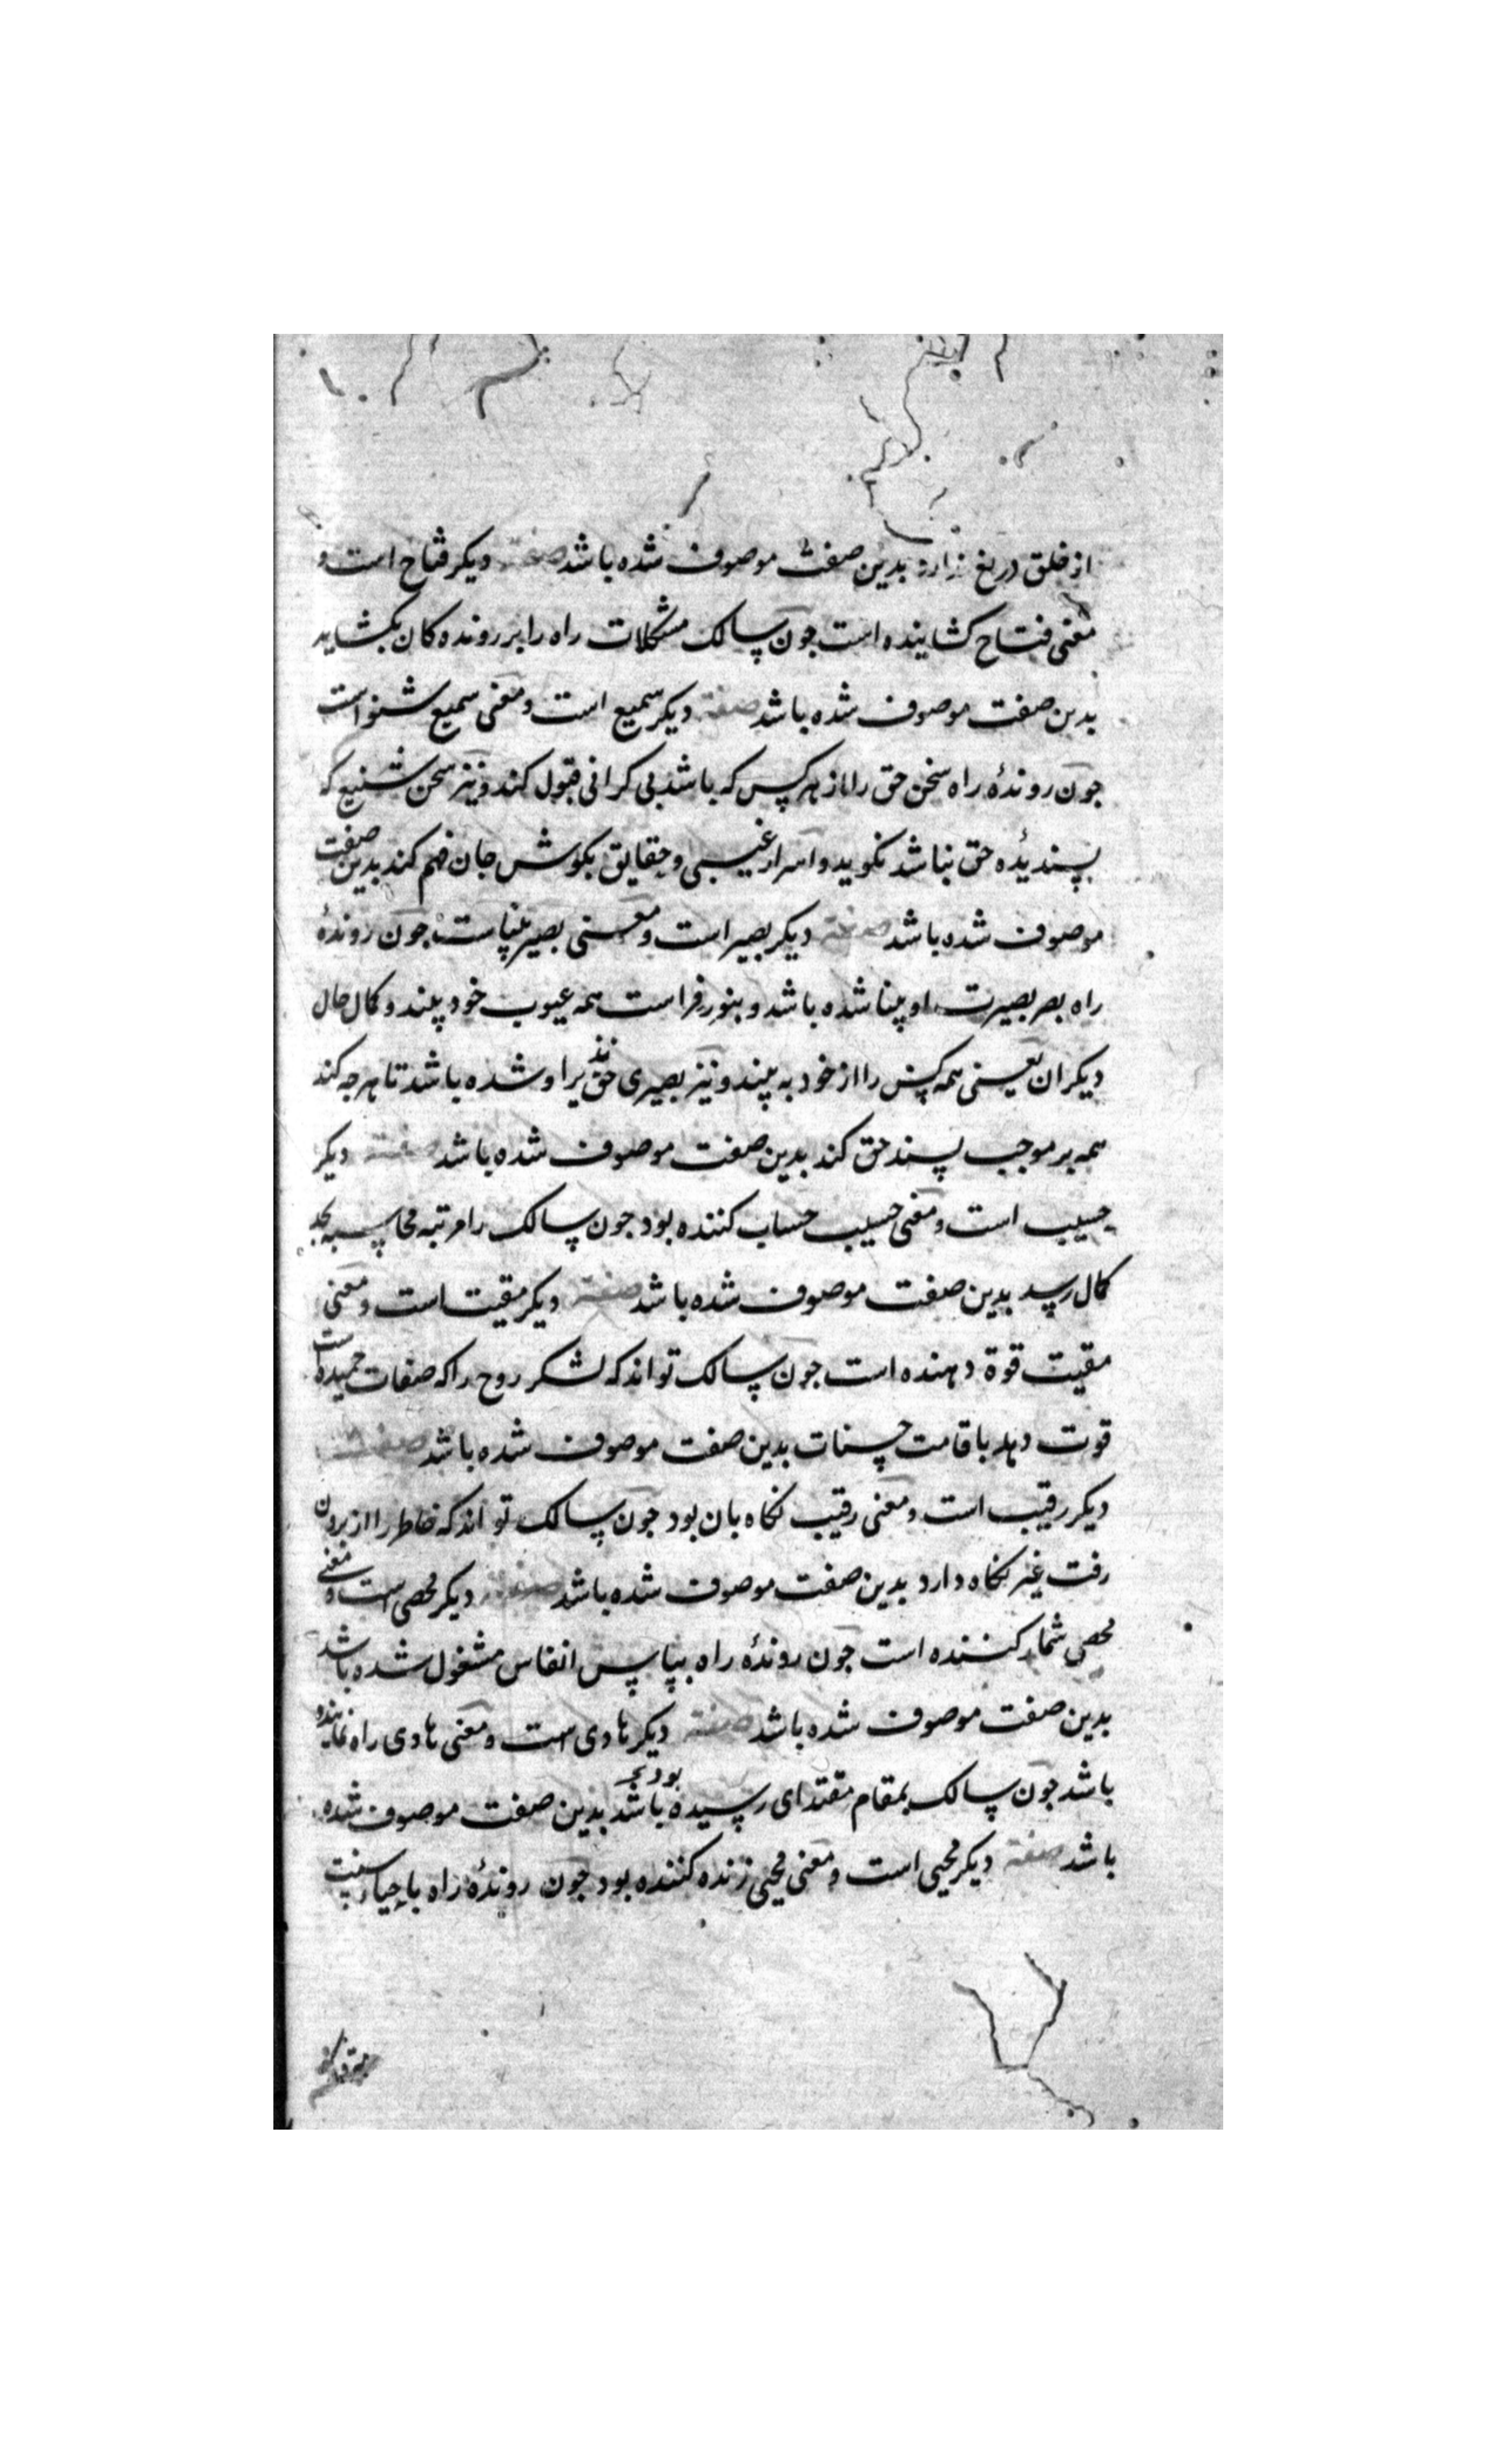 از خلق دریغ ندارد بدین صفت موصوف شده باشد صفت دیکر فتاح است و
معنی فتاح کشاینده است جون سالک مشکلات راه را بر رونده کان بکشاید
بدین صفت موصوف شده باشد صفت دیکر سمیع است و معنی سمیع شنواست
جون روندهٔ راه سخن حق را از هر کس که باشد بی کرانی قبول کند و نیز سخن شنیع که
پسندیده حق نباشد نکوید و اسرار غیبی و حقایق بکوش جان فهم کند بدین صفت
موصوف شده باشد صفت دیکر بصیر است و معنی بصیر بیناست جون روندهٔ
راه بصر بصیرت او بینا شده باشد و بنور فراست همه عیوب خود بیند و کمال حال
دیکران یعنی همه کس را از خود به بیند و نیز بصیری حق یرا و شده باشد تا هر جه کند
همه بر موجب پسند حق کند بدین صفت موصوف شده باشد صفت دیکر
حسیب است و معنی حسیب حساب کننده بود جون سالک را مرتبه محاسبه بحد
کمال رسد بدین صفت موصوف شده باشد صفت دیکر مقیت است و معنی
مقیت قوة دهنده است جون سالک تواند که لشکر روح را که صفات حمیده است
قوت دهد باقامت حسنات بدین صفت موصوف شده باشد صفت
دیکر رقیب است و معنی رقیب نکاه بان بود جون سالک تواند که خاطر را از برون
رفت غیر نکاه دارد بدین صفت موصوف شده باشد صفت دیکر محصی است و معنی
محصی شمار کننده است جون روندهٔ راه بپاس انفاس مشغول شده باشد
بدین صفت موصوف شده باشد صفت دیکر هادی است و معنی هادی راه نماینده
باشد جون سالک بمقام مقتدای رسیده باشد بدین صفت موصوف شده
باشد صفت دیکر محیی است و معنی محیی زنده کننده بود جون روندهٔ راه باحیاء سنت